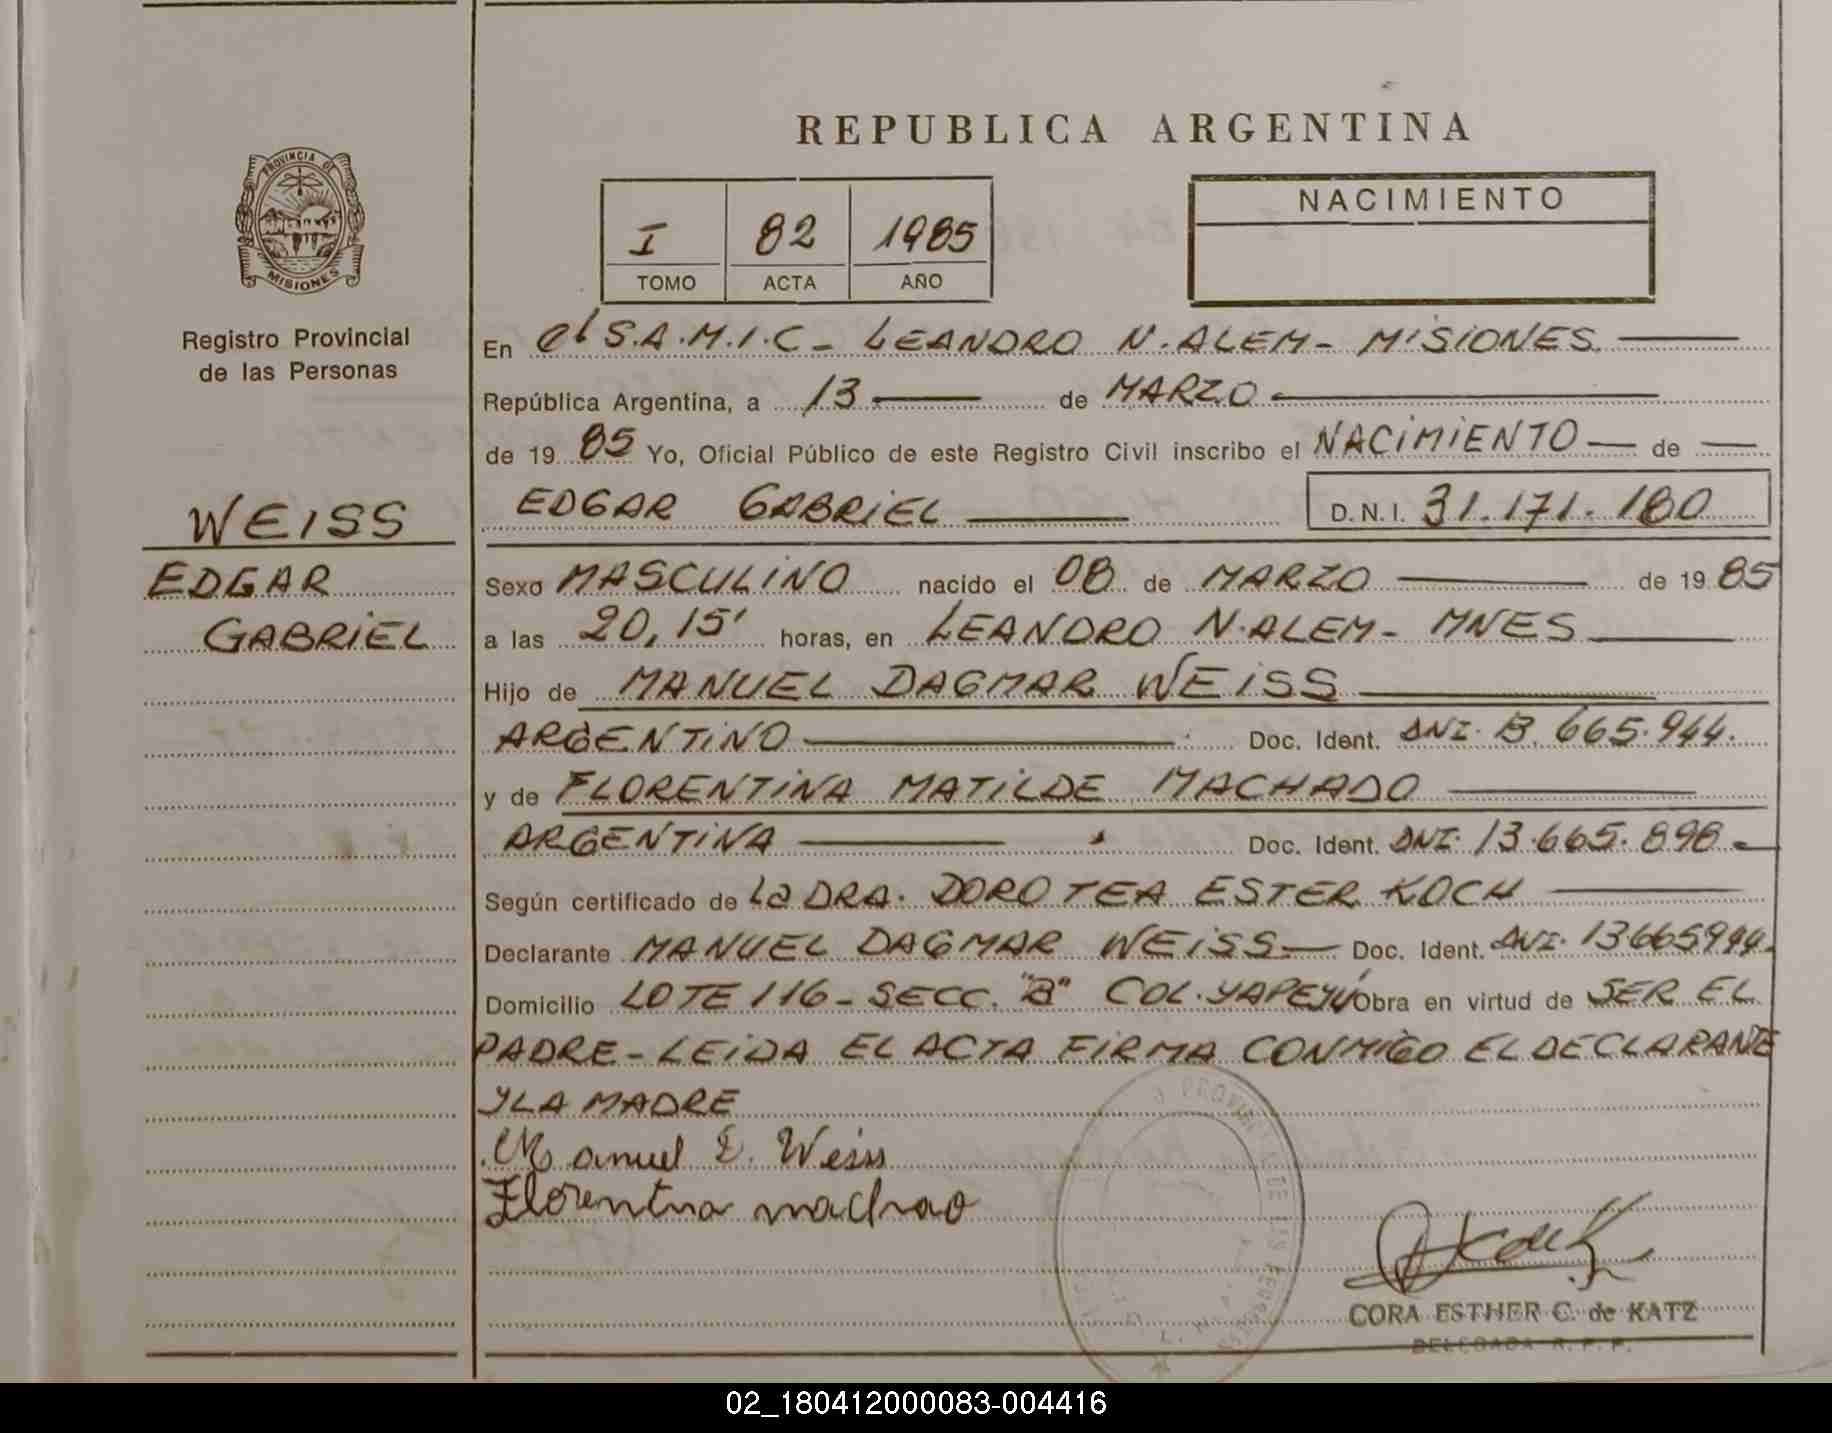 REPUBLICA ARGENTINA
PROVINCIA DE
MISIONES
I 82 1985
TOMO ACTA AÑO
NACIMIENTO
Registro Provincial
de las Personas
WEISS
EDGAR
GABRIEL
En el S.A.M.I.C - LEANDRO N. ALEM - MISIONES.
República Argentina, a 13 de MARZO
de 19 85 Yo, Oficial Público de este Registro Civil inscribo el NACIMIENTO de
EDGAR GABRIEL D.N.I. 31.171.180
Sexo MASCULINO nacido el 08 de MARZO de 19 85
a las 20,15' horas, en LEANDRO N. ALEM - MNES
Hijo de MANUEL DAGMAR WEISS
ARGENTINO Doc. Ident. DNI. 13.665.944.
y de FLORENTINA MATILDE MACHADO
ARGENTINA Doc. Ident. DNI. 13.665.898.-
Según certificado de La DRA. DOROTEA ESTER KOCH
Declarante MANUEL DAGMAR WEISS Doc. Ident. DNI. 13665944.
Domicilio LOTE 116 - SECC. "B" COL. YAPEYÚ Obra en virtud de SER EL
PADRE - LEIDA EL ACTA FIRMA CONMIGO EL DECLARANTE
Y LA MADRE
Manuel D. Weiss
Florentina machao
CORA ESTHER C. de KATZ
DELEGADA R. P. P.
02_180412000083-004416